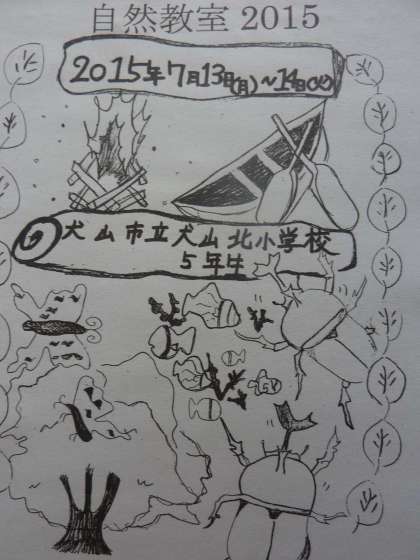 自然教室 2015
2015年7月13日(月)~14日(火)
犬山市立犬山北小学校
5年生